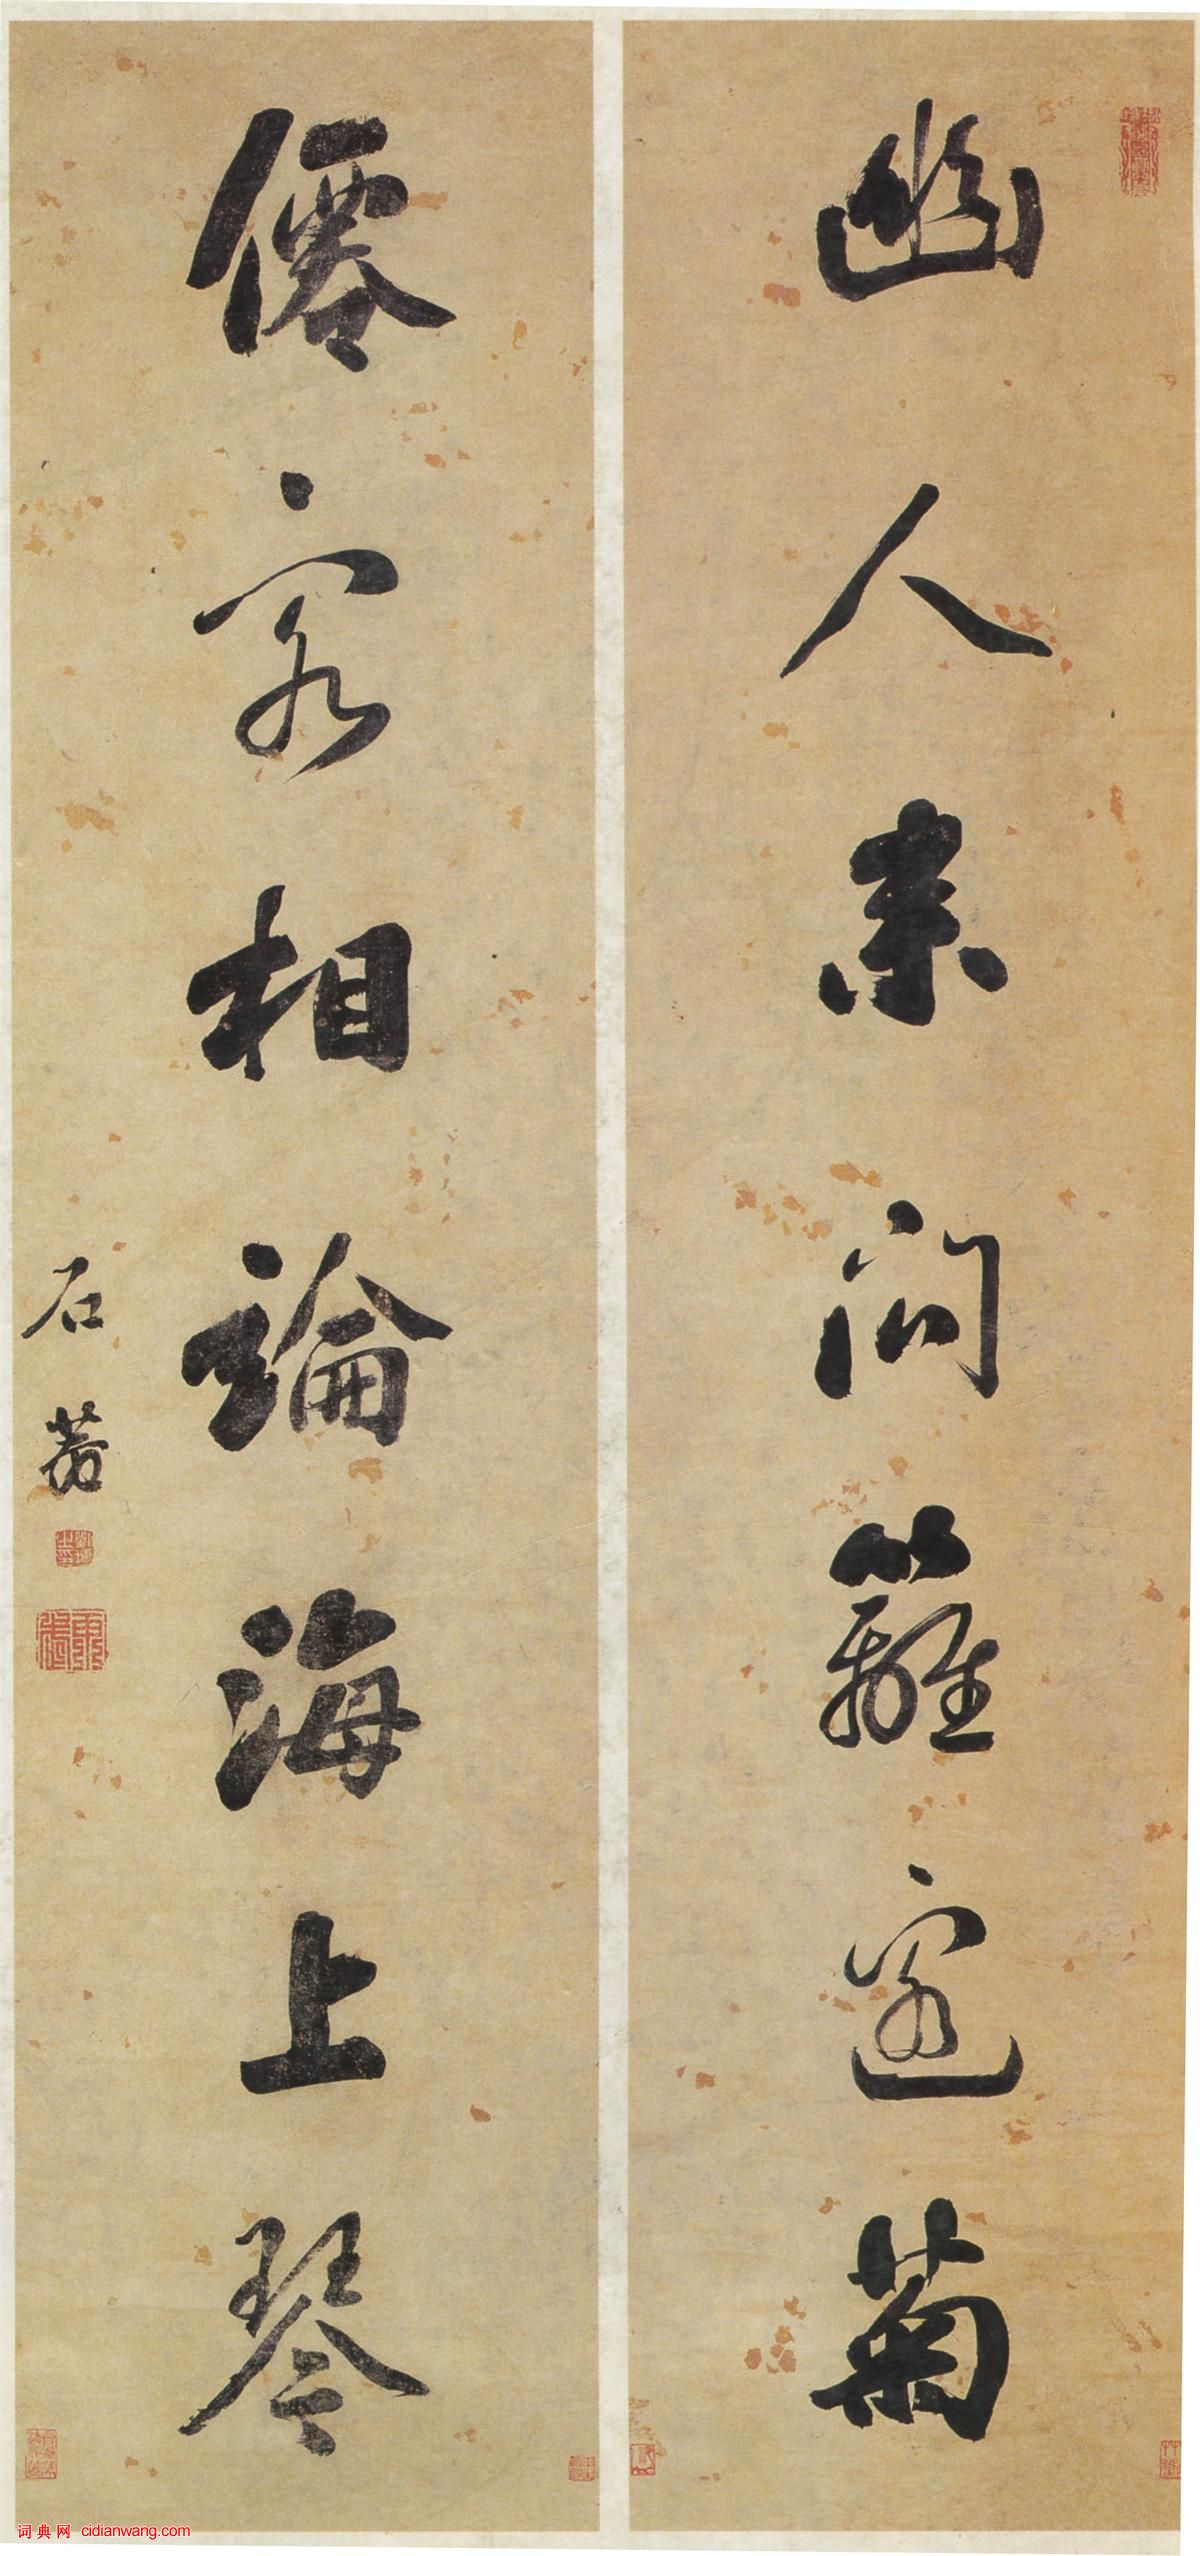 幽人来問籬邊菊
僊客相論海上琴
石菴
词典网 cidianwang.com